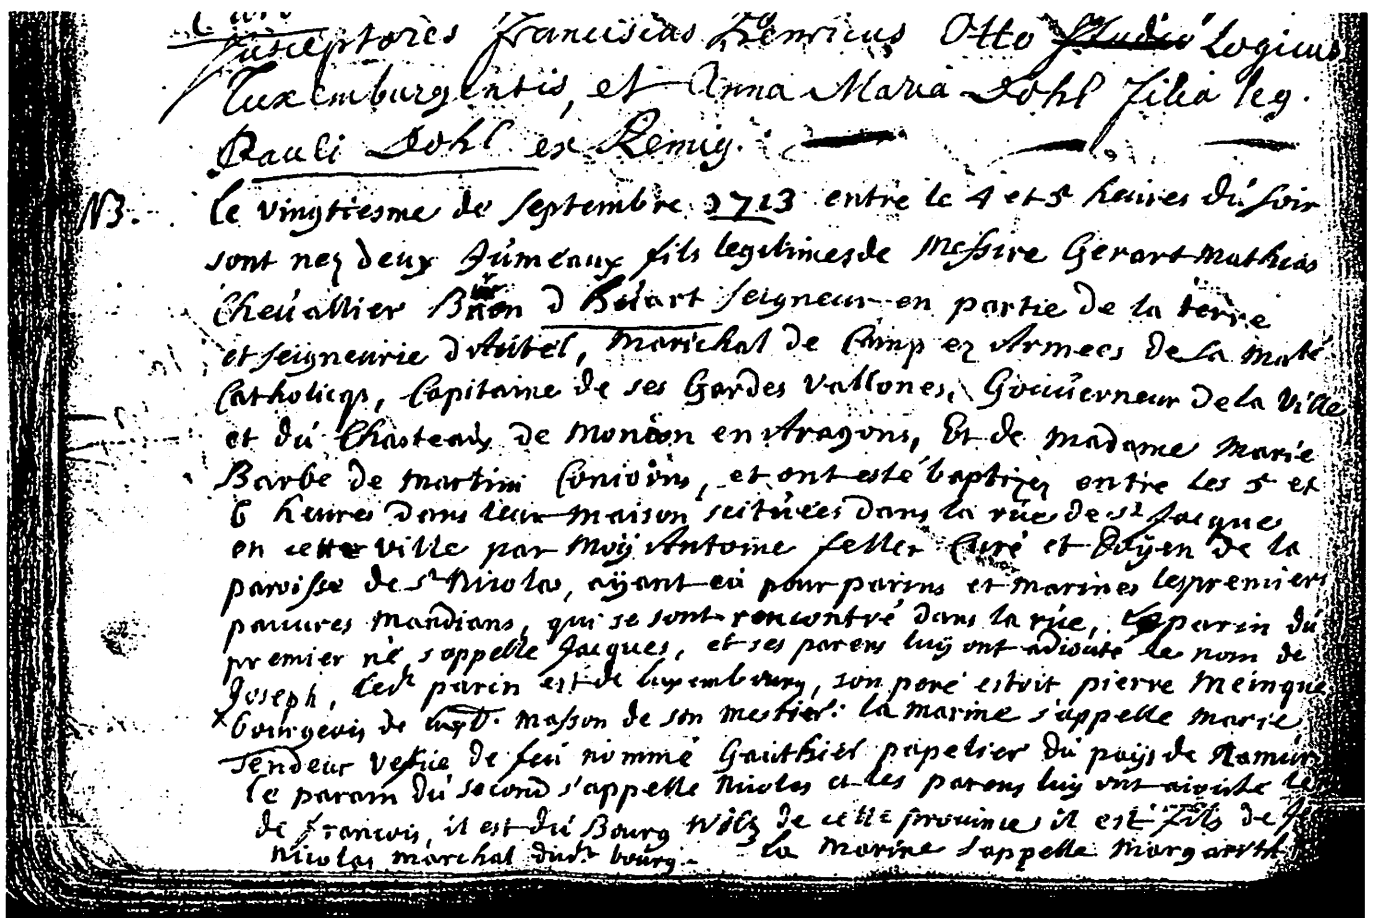 Susceptores Franciscus Henricus Otto Studio Logicus
Luxemburgensis, et Anna Maria Dohl filia leg.
Pauli Dohl ex Remig.
NB. le vingtiesme de septembre 1713 entre le 4 et 5 heures du soir
sont nez deux Jumeaux fils legitimes de Messire Gerart Mathias
Chevallier Baron d Huart seigneur en partie de la terre
et seigneurie d'Autel, Marichal de Camp ez Armees de sa Maté
Catholicqs, Capitaine de ses Gardes Vallones, Gouverneur de la Ville
et du Chasteaux de Moncon en Aragons, Et de Madame Marie
Barbe de Martini Conioins, et ont esté baptizez entre les 5 et
6 heures dans leur maison scituées dans la rue de st Jacque
en cette ville par Moÿ Antoine feller Curé et Doÿen de la
paroisse de st Nicolas, aÿant eu pour parins et marines les premiers
pauvres mandians, qui se sont rencontré dans la rue, le parin du
premier né, s'appelle Jacques, et ses parens luÿ ont adiouté le nom de
Joseph, ledt parin est de luxembourg, son pere estoit pierre Meinque
bourgeois de luxb. masson de son mestier: la marine s'appelle marie
Tendeur vefue de feu nommé Gauthiel papelier du paÿs de Namur
le parain du second s'appelle Nicolas et les parens luÿ ont aioute le
de francois, il est du Bourg Wilz de cette province il est fils de
Nicolas marchal dudt bourg. la marine s'appelle Margarith